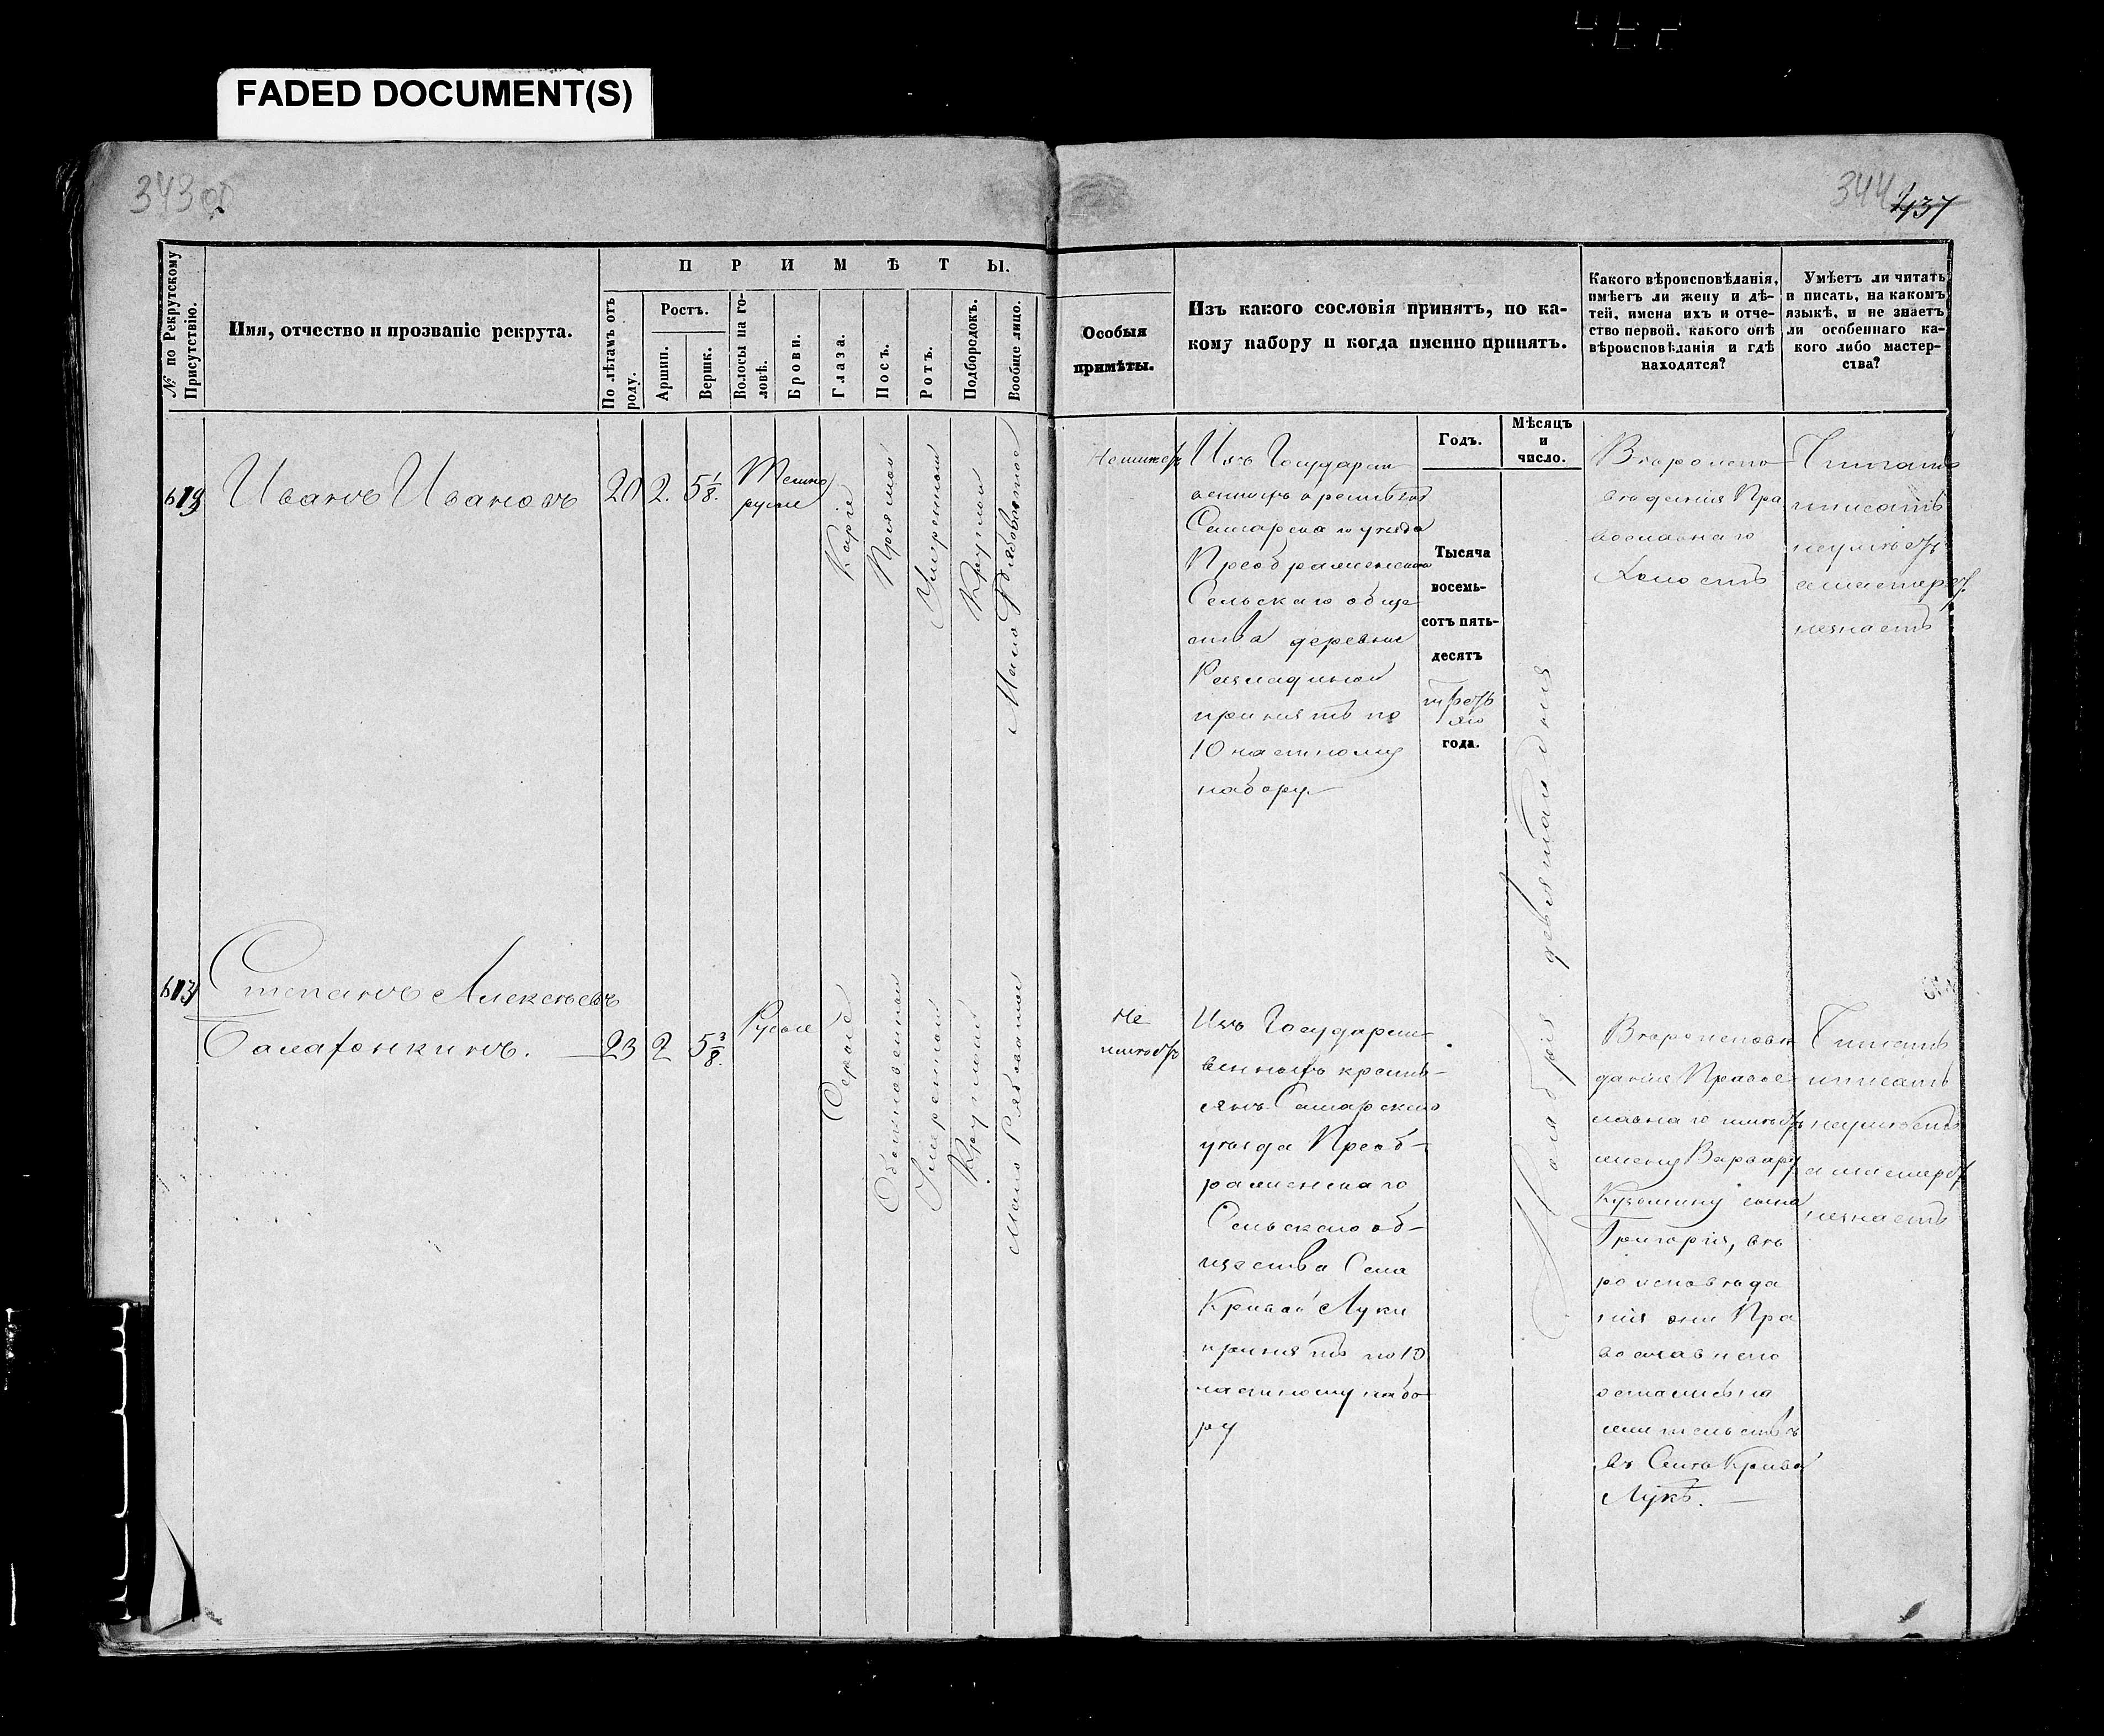 FADED DOCUMENT(S)
343 об
344
437
№ по Рекрутскому Присутствію.
Имя, отчество и прозваніе рекрута.
П Р И М Ѣ Т Ы.
По лѣтамъ отъ роду.
Ростъ.
Аршин.
Вершк.
Волосы на головѣ.
Брови.
Глаза.
Носъ.
Ротъ.
Подбородокъ.
Вообще лицо.
Особыя
примѣты.
Изъ какого сословія принятъ, по ка-
кому набору и когда именно принятъ.
Какого вѣроисповѣданія,
имѣетъ ли жену и дѣ-
тей, имена ихъ и отче-
ство первой, какого онѣ
вѣроисповѣданія и гдѣ
находятся?
Умѣетъ ли читать
и писать, на какомъ
языкѣ, и не знаетъ
ли особеннаго ка-
кого либо мастер-
ства?
Годъ.
Мѣсяцъ
и
число.
Иванъ Ивановъ
20
2.
5 1/8.
Темно
русые
Каріе
Прямой
Умеренный
Круглой
Мало Рябоватое
Неимеетъ
Изъ Государст
венныхъ крестьян
Самарскаго уезда
Преображенскаго
Сельскаго обще
ства деревни
принятъ по
10 частному
набору.
Тысяча
восемь-
сотъ пять-
десятъ
третья
го
года.
Ноября девятаго дня
Вероиспо
веданія Пра
вославнаго
Холостъ
Читать
писать
неумеетъ
а мастерст.
незнаетъ
613
Степанъ Алексеевъ
Балафонкинъ.
23
2
5 3/8.
Русые
Серые
Обыкновенный
Умеренный
Круглый
Мало Рябоватое
Не
имеетъ
Изъ Государст
венныхъ кресть-
янъ Самарскаго
уезда Преоб-
раженскаго
Сельскаго об-
щества Села
Кривой Луки
принятъ по 10
частному набо
ру
Вероисповѣ
данія Правос
лавнаго имеетъ
жену Варвару
Кузьмину сына
Григорія, вѣ
роисповеда
нія они Пра
вославнаго
остались на
жительствѣ
въ Селѣ Кривой
Лукѣ.
Читать
писать
неумеетъ
а мастерст
незнаетъ